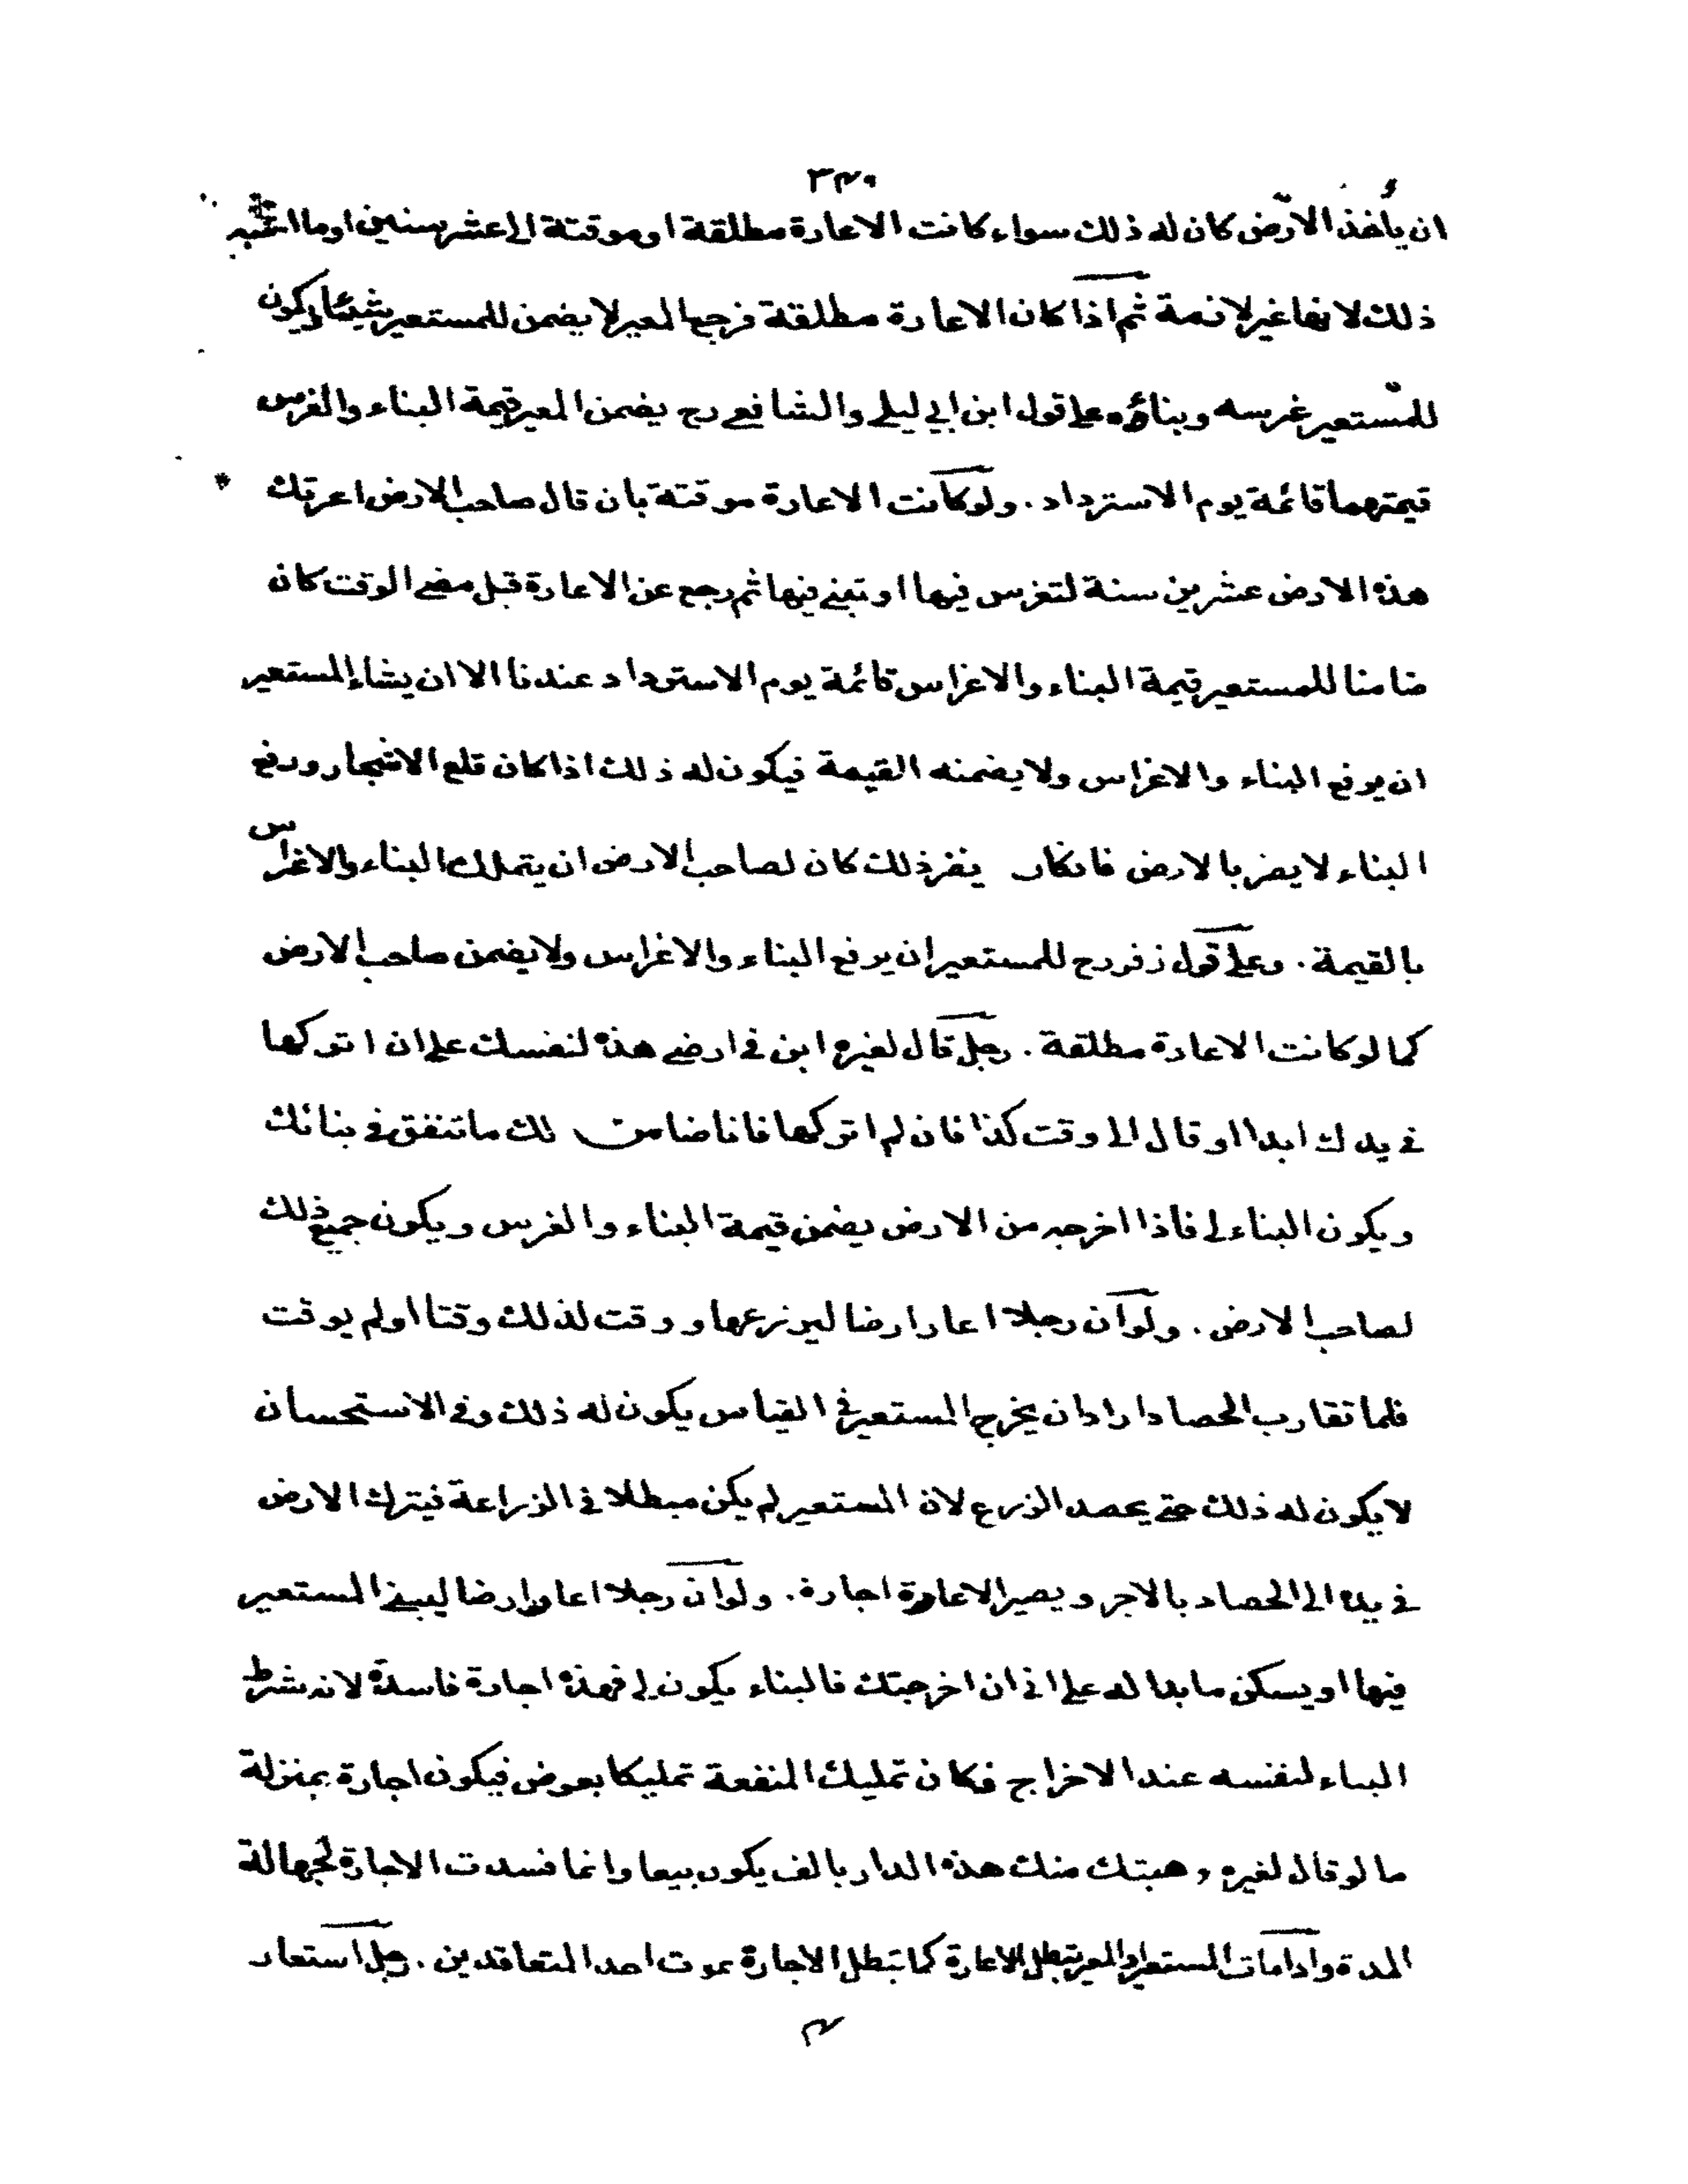 ٣٤٩
ان يأخذ الارض كان له ذلك سواء كانت الاعارة مطلقة او موقتة الى عشر سنين او ما اشبه
ذلك لانها غير لازمة ثم اذا كان الاعارة مطلقة فرجع المعير لا يضمن للمستعير شيئا ويكون
للمستعير غرسه وبناؤه على قول ابن ابي ليلى والشافعى رح يضمن المعير قيمة البناء والغرس
قيمتهما قائمة يوم الاسترداد . ولو كانت الاعارة موقتة بان قال صاحب الارض اعرتك
هذه الارض عشرين سنة لتغرس فيها او تبنى فيها ثم رجع عن الاعارة قبل مضى الوقت كان
ضامنا للمستعير قيمة البناء والاغراس قائمة يوم الاسترداد عندنا الا ان يشاء المستعير
ان يرفع البناء والاغراس ولا يضمنه القيمة فيكون له ذلك اذا كان قلع الاشجار ورفع
البناء لا يضر بالارض فان كان يضر ذلك كان لصاحب الارض ان يتملك البناء والاغراس
بالقيمة . وعلى قول زفر رح للمستعير ان يرفع البناء والاغراس ولا يضمن صاحب الارض
كما لو كانت الاعارة مطلقة . رجل قال لغيره ابن فى ارضى هذه لنفسك على ان اتركها
فى يدك ابدا او قال الى وقت كذا فان لم اتركها فانا ضامن لك ما تنفق فى بنائك
ويكون البناء لى فاذا اخرجه من الارض يضمن قيمة البناء والغرس ويكون جميع ذلك
لصاحب الارض . ولو ان رجلا اعار ارضا ليزرعها ووقت لذلك وقتا او لم يوقت
فلما تقارب الحصاد اراد ان يخرج المستعير فى القياس يكون له ذلك وفى الاستحسان
لا يكون له ذلك حتى يحصد الزرع لان المستعير لم يكن مبطلا فى الزراعة فيترك الارض
فى يده الى الحصاد بالاجر ويصير الاعارة اجارة . ولو ان رجلا اعار ارضا ليبنى المستعير
فيها او يسكن ما بدا له على انى ان اخرجتك فالبناء يكون لى فهذه اجارة فاسدة لانه شرط
البناء لنفسه عند الاخراج فكان تمليك المنفعة تمليكا بعوض فيكون اجارة بمنزلة
ما لو قال لغيره وهبتك منك هذه الدار بالف يكون بيعا وانما فسدت الاجارة لجهالة
المدة واذا مات المستعير او المعير تبطل الاعارة كما تبطل الاجارة بموت احد المتعاقدين . رجل استعار